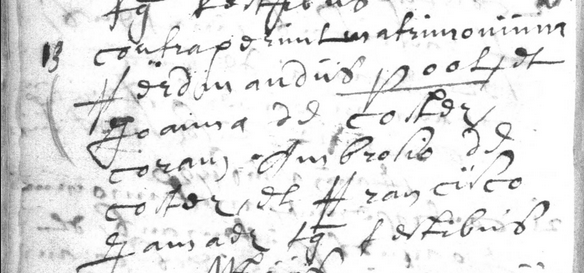 tq testibus
13 contraxerunt matrimonium
Ferdinandus Pool et
Joanna de Coster
coram Ambrosio de
Coster, et Francisco
tq testibus